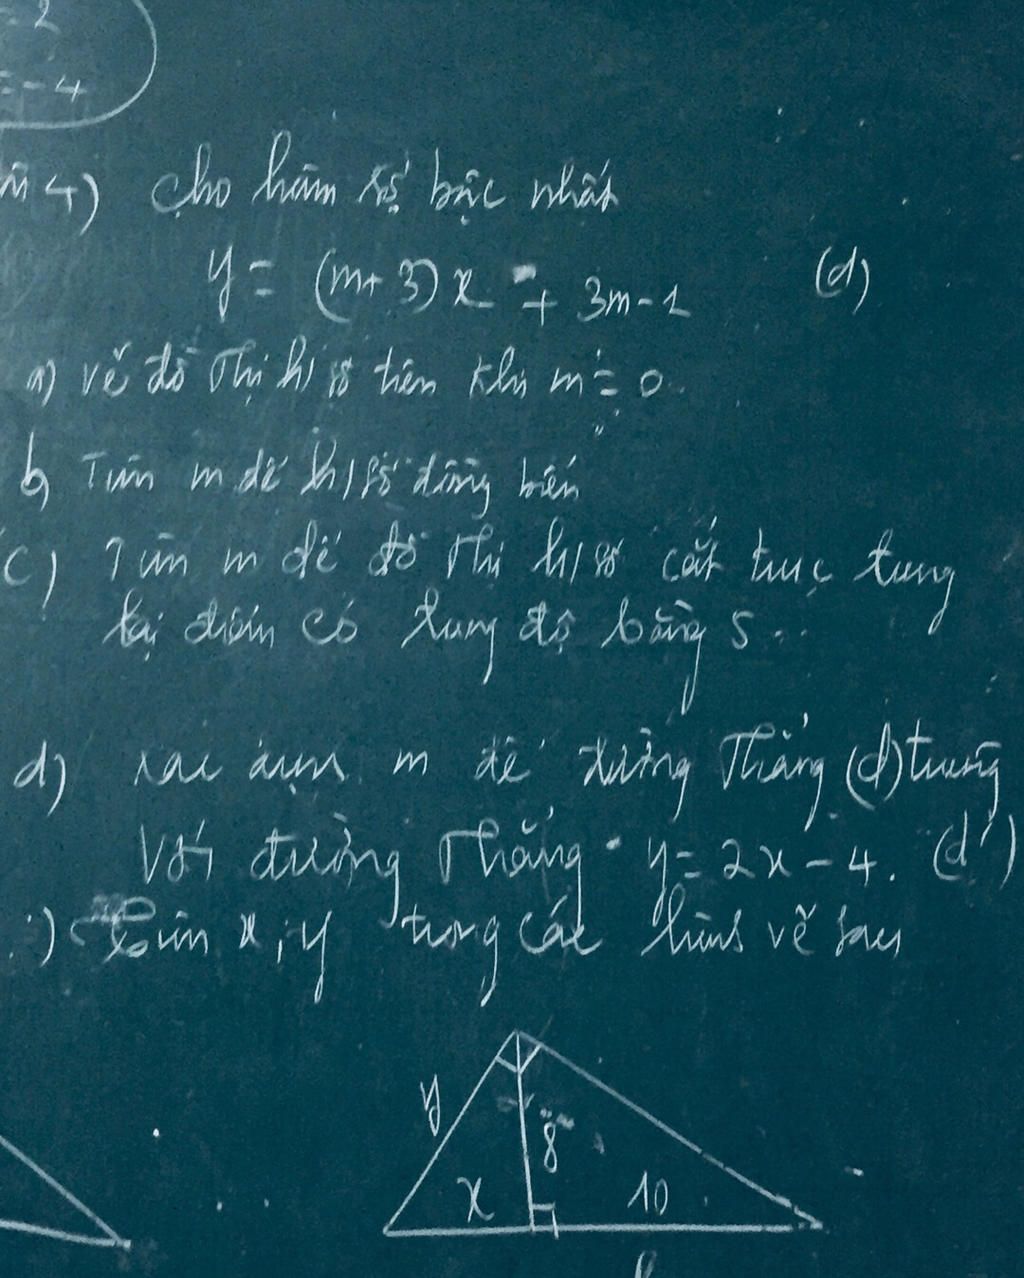 = 2
= - 4
4) Cho hàm số bậc nhất
y = (m+3)x + 3m-1 (d)
a) vẽ đồ thị h/số trên khi m = 0
b) Tìm m để h/số đồng biến
c) Tìm m để đồ thị h/số cắt trục tung
tại điểm có tung độ bằng 5
d) xác định m để đường thẳng (d) trùng
Với đường thẳng y = 2x - 4. (d')
) Tìm x, y trong các hình vẽ sau
y
8
x
10